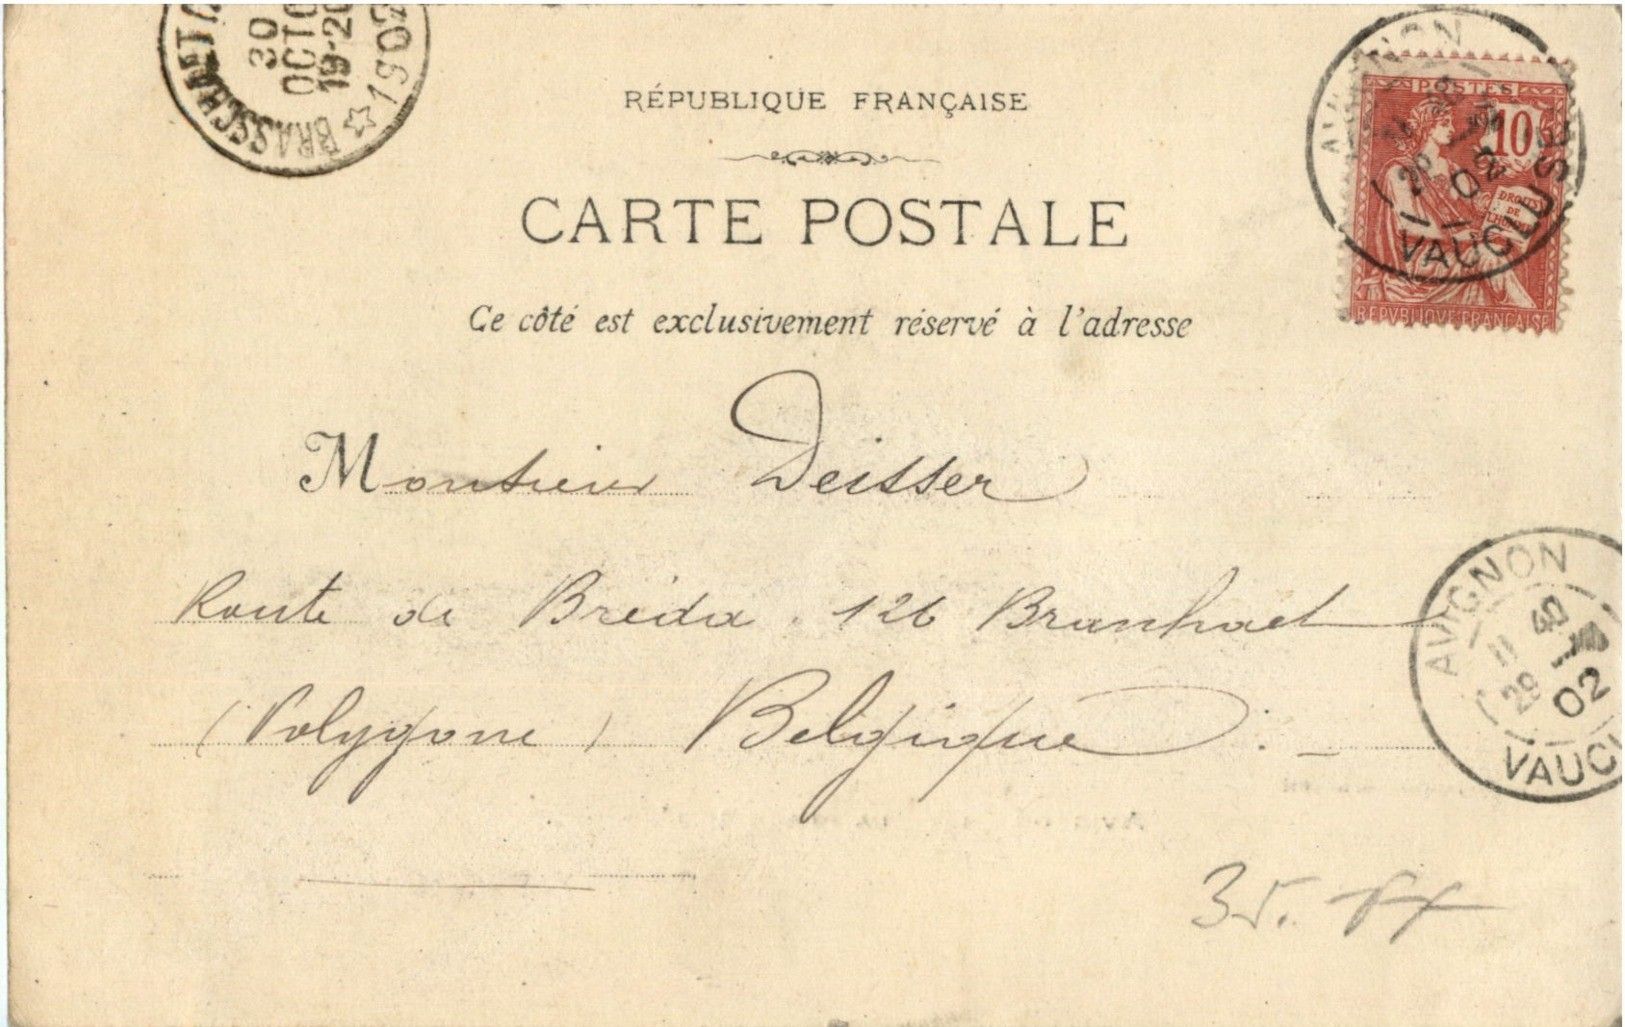 BRASSCHAET
30
OCTO
19-20
1902
RÉPUBLIQUE FRANÇAISE
CARTE POSTALE
Ce côté est exclusivement réservé à l'adresse
POSTES
10
DROITS
DE
REPVBLIQVE FRANÇAISE
AVIGNON
02
VAUCLUSE
Monsieur Deisser
Route de Bréda . 126 Brasshaet
(Polygone) Belgique
AVIGNON
11 40
29
02
VAUCL
35.